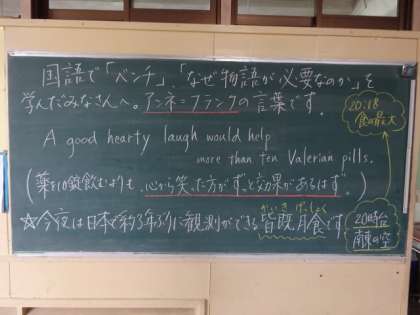 国語で「ベンチ」「なぜ物語が必要なのか」を
学んだみなさんへ。アンネ=フランクの言葉です。
A good hearty laugh would help
more than ten Valerian pills.
(薬を10錠飲むよりも、心から笑った方がずっと効果があるはず。)
☆今夜は日本で約3年ぶりに観測ができる皆既月食です
かいき げっしょく
20:18
食の最大
20時台
南東の空